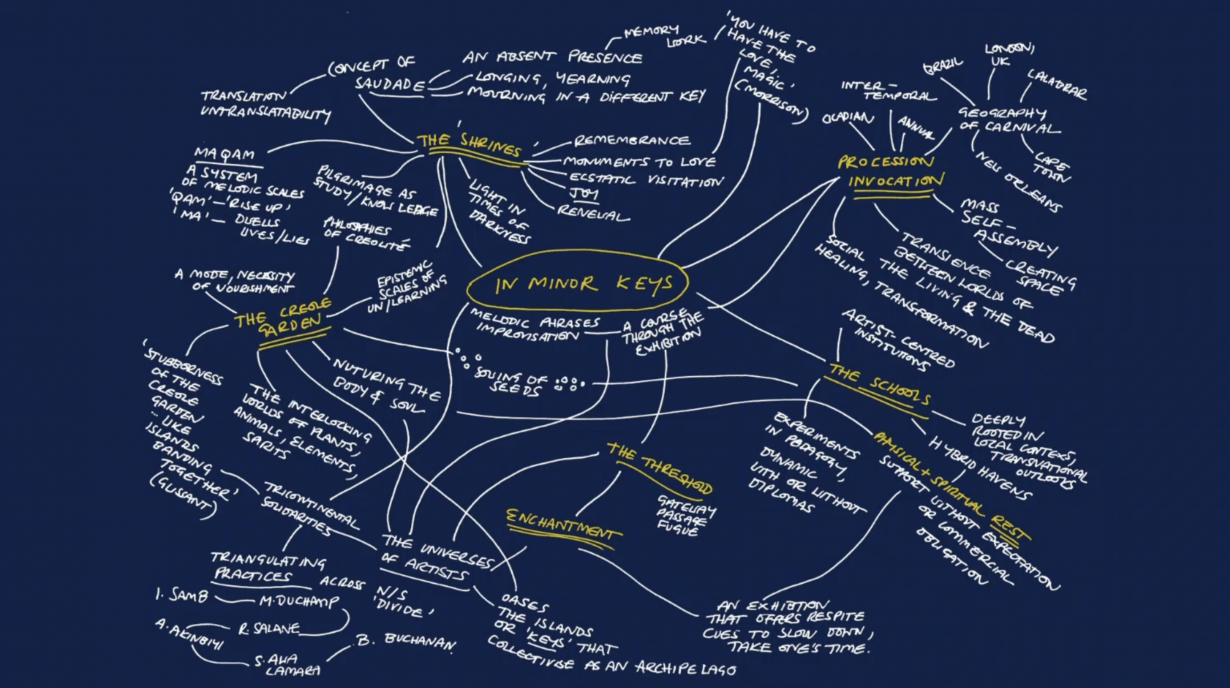 MEMORY
WORK
'YOU HAVE TO
HAVE THE
LOVE,
MAGIC'
(MORRISON)
CONCEPT OF
SAUDADE
AN ABSENT PRESENCE
LONGING, YEARNING
MOURNING IN A DIFFERENT KEY
TRANSLATION
UNTRANSLATABILITY
THE 'SHRINES
REMEMBRANCE
MONUMENTS TO LOVE
ECSTATIC VISITATION
JOY
RENEWAL
LIGHT IN
TIMES OF
DARKNESS
MAQAM
A SYSTEM
OF MELODIC SCALES
'QAM' – 'RISE UP'
'MA' – DWELLS
LIVES/LIES
PILGRIMAGE AS
STUDY/KNOWLEDGE
PHILOSPHIES
OF CREOLITÉ
EPISTEMIC
SCALES OF
UN/LEARNING
A MODE, NECESSITY
OF NOURISHMENT
THE CREOLE
GARDEN
'STUBBORNESS
OF THE
CREOLE
GARDEN
... LIKE
ISLANDS
BANDING
TOGETHER'
(GLISSANT)
THE INTERLOCKING
WORLDS OF PLANTS,
ANIMALS, ELEMENTS,
SPIRITS
NUTURING THE
BODY & SOUL
IN MINOR KEYS
MELODIC PHRASES
IMPROVISATION
A COURSE
THROUGH THE
EXHIBITION
SOWING OF
SEEDS
INTER-
TEMPORAL
OCADIAN
ANNUAL
BRAZIL
LONDON,
UK
LALADBAR
GEOGRAPHY
OF CARNIVAL
CAPE
TOWN
NEW ORLEANS
PROCESSION
INVOCATION
MASS
SELF-
ASSEMBLY
CREATING
SPACE
TRANSIENCE
BETWEEN WORLDS OF
THE LIVING & THE DEAD
SOCIAL
HEALING, TRANSFORMATION
ARTIST-CENTRED
INSTITUTIONS
THE SCHOOLS
DEEPLY
ROOTED IN
LOCAL CONTEXTS,
TRANSNATIONAL
OUTLOOKS
HYBRID HAVENS
EXPERIMENTS
IN PEDAGOGY,
DYNAMIC
WITH OR WITHOUT
DIPLOMAS
PHYSICAL + SPIRITUAL REST
SUPPORT WITHOUT EXPECTATION
OR COMMERCIAL
OBLIGATION
THE THRESHOLD
GATEWAY
PASSAGE
FUGUE
ENCHANTMENT
AN EXHIBTION
THAT OFFERS RESPITE
CUES TO SLOW DOWN,
TAKE ONE'S TIME.
TRICONTINENTAL
SOLIDARITIES
THE UNIVERSES
OF ARTISTS
TRIANGULATING
PRACTICES ACROSS
N/S
'DIVIDE'
I. SAMB
M. DUCHAMP
R. SALANE
A. AKINBIYI
S. ALIA
CAMARA
B. BUCHANAN
OASES
THE ISLANDS
OR 'KEYS' THAT
COLLECTIVISE AS AN ARCHIPELAGO